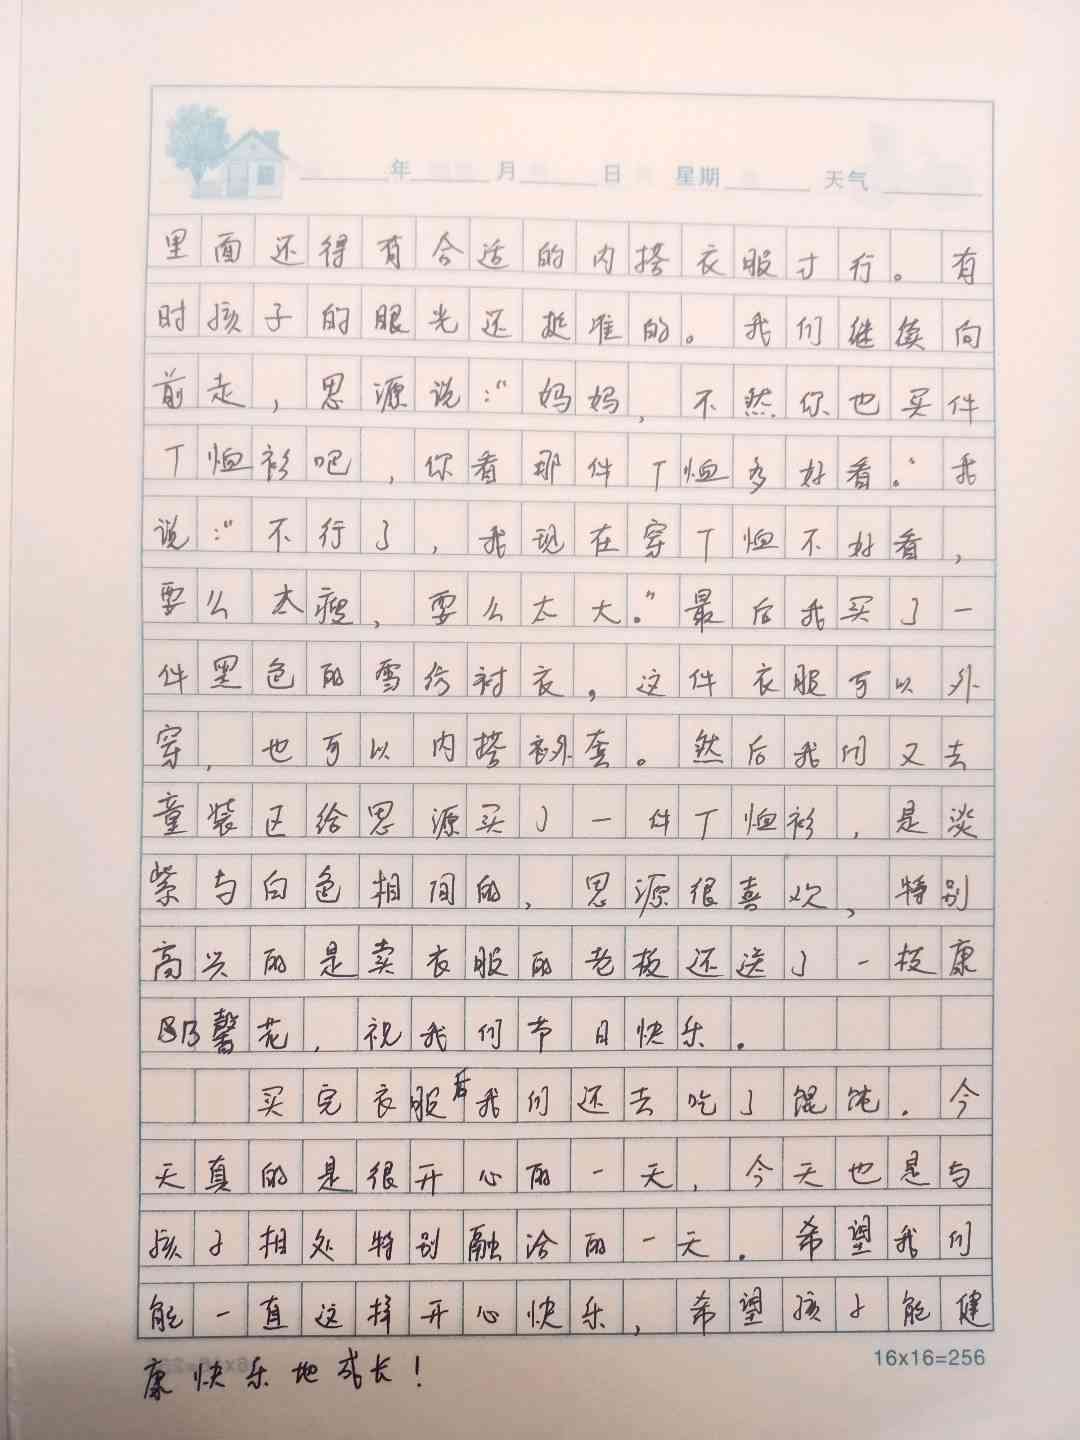 年 月 日 星期 天气
里面还得有合适的内搭衣服才行。有
时孩子的眼光还挺准的。我们继续向
前走，思源说：“妈妈，不然你也买件
T恤衫吧，你看那件T恤多好看。”我
说：“不行了，我现在穿T恤不好看，
要么太瘦，要么太大。”最后我买了一
件黑色的雪纺衬衣，这件衣服可以外
穿，也可以内搭外套。然后我们又去
童装区给思源买了一件T恤衫，是淡
紫与白色相间的，思源很喜欢，特别
高兴的是卖衣服的老板还送了一枝康
馨花，祝我们节日快乐。
买完衣服后我们还去吃了馄饨。今
天真的是很开心的一天，今天也是与
孩子相处特别融洽的一天。希望我们
能一直这样开心快乐，希望孩子能健
康快乐地成长！
16x16=256